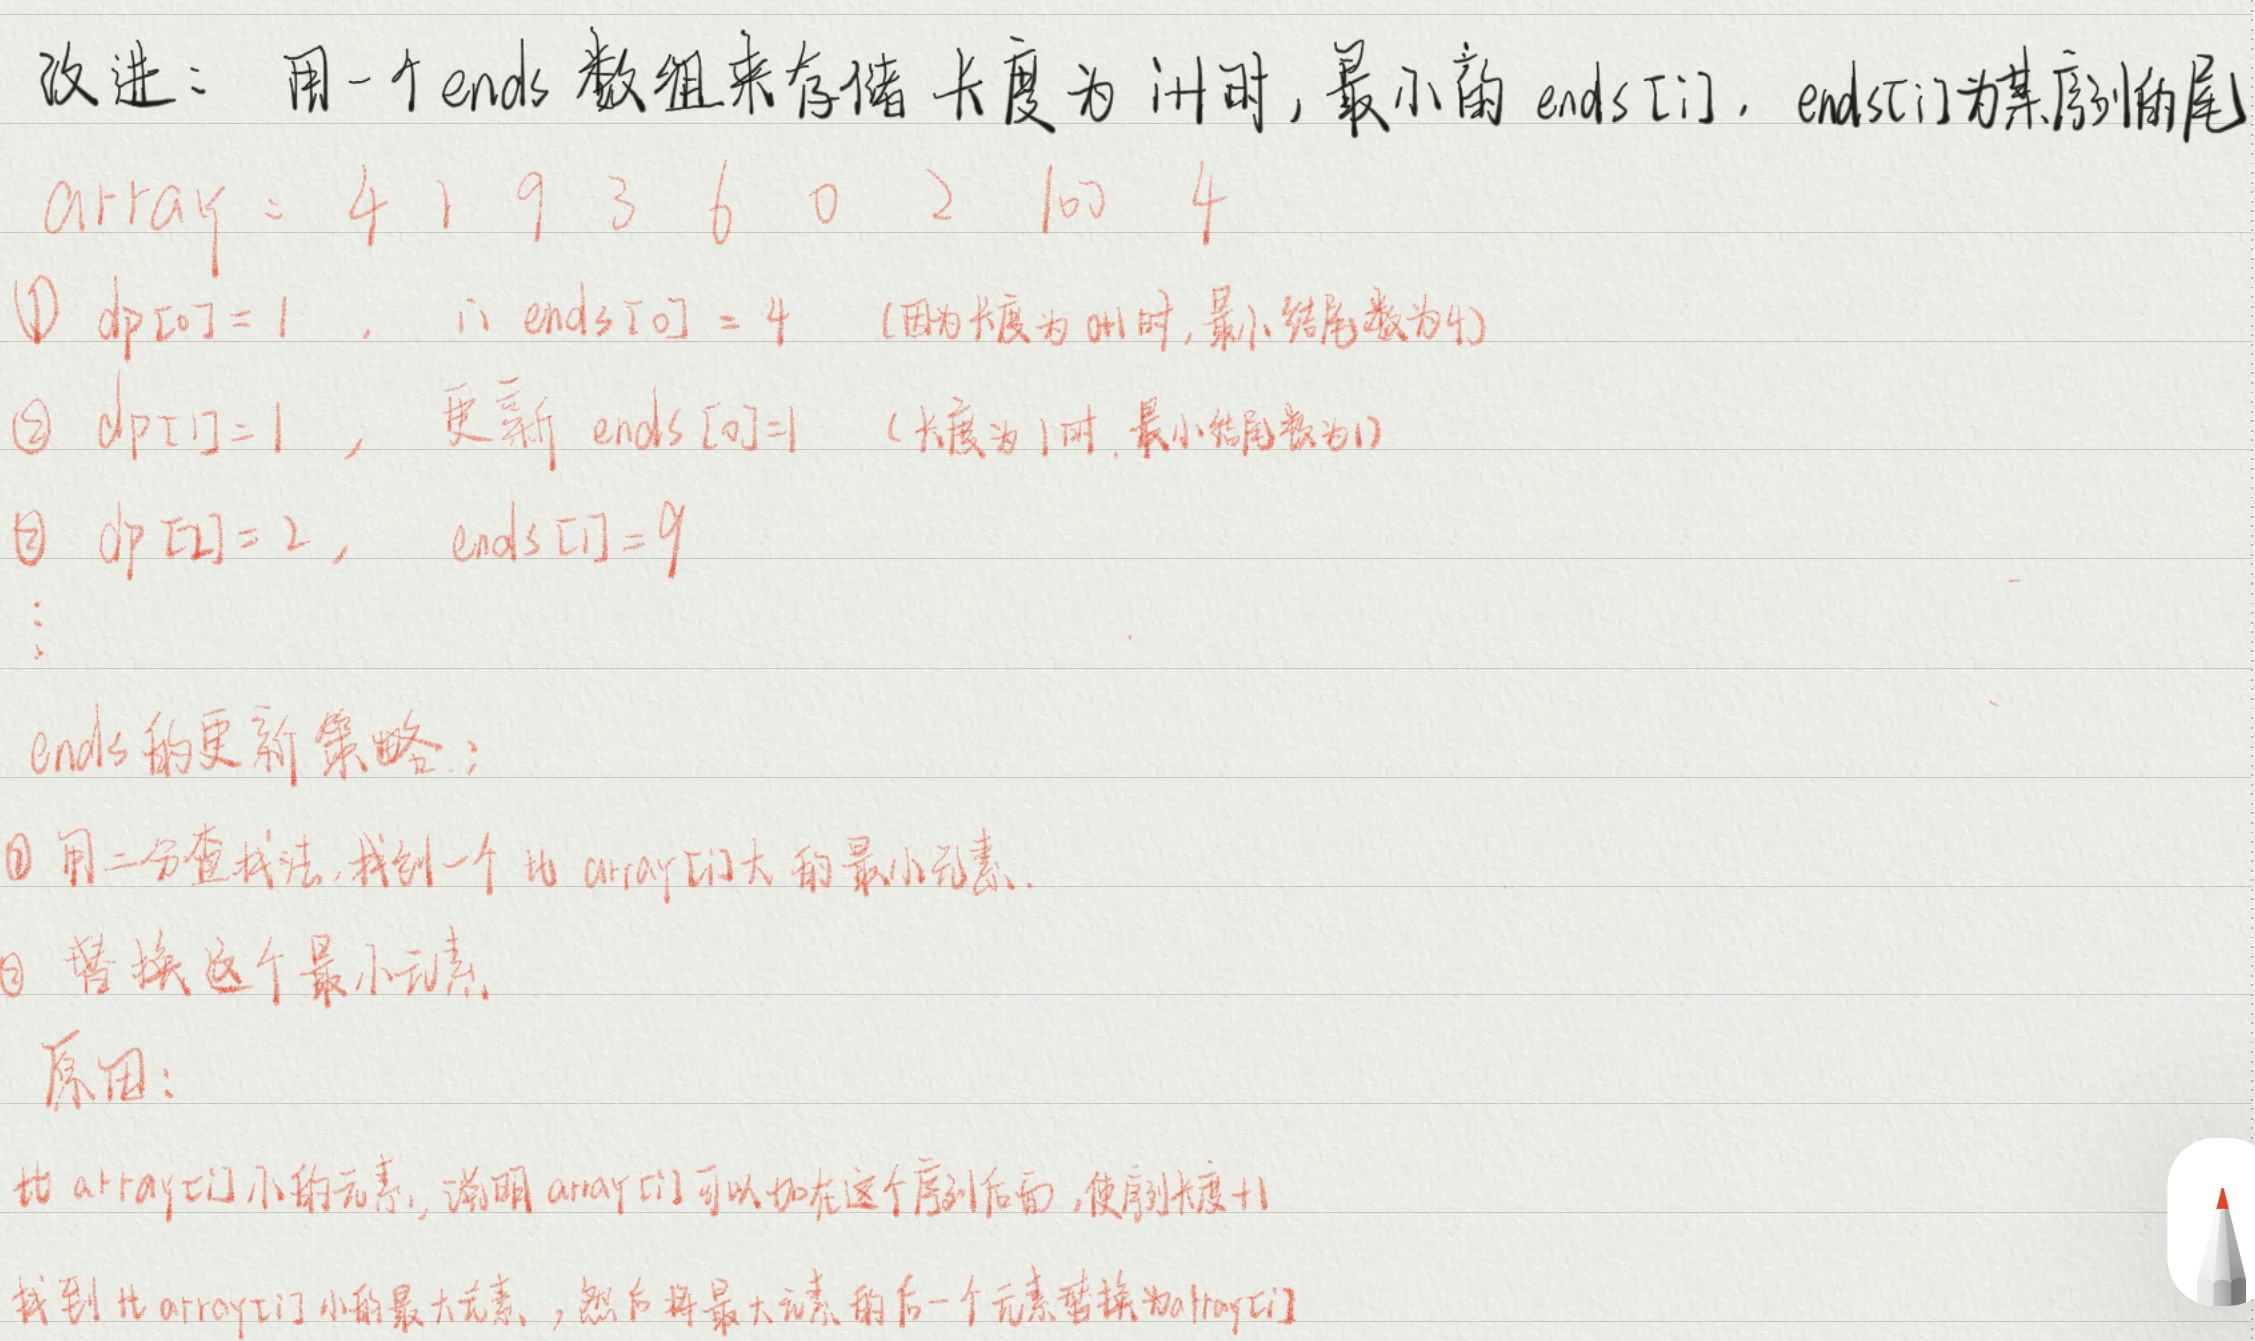 改进： 用一个 ends 数组来存储 长度为 i+1时, 最小的 ends[i]. ends[i]为某序列的尾
array: 4 1 9 3 6 0 2 100 4
① dp[0]=1 , ends[0] = 4 (因为长度为 0+1时, 最小结尾数为4)
② dp[1]=1 , 更新 ends[0]=1 (长度为1时, 最小结尾数为1)
dp[2]=2, ends[1]=9
ends的更新策略:
① 用二分查找法, 找到一个 比 array[i]大的最小元素.
② 替换这个最小元素
原因:
比 array[i]小的元素, 说明 array[i] 可以加在这个序列后面, 使序列长度+1
找到比array[i]小的最大元素, 然后将最大元素的后一个元素替换为array[i]